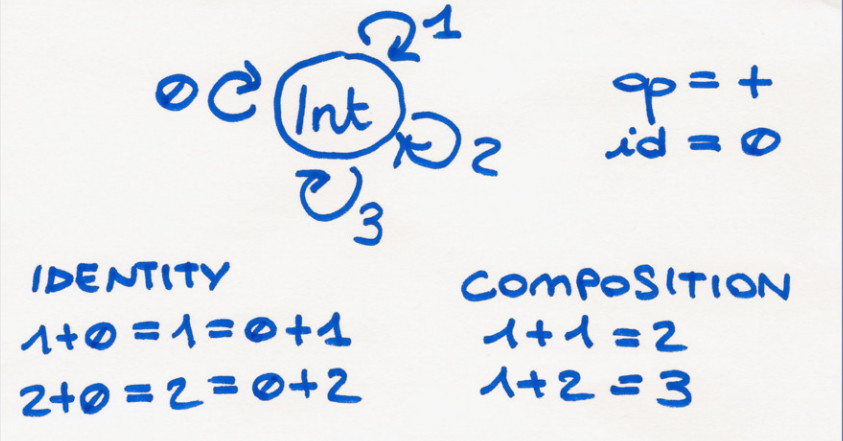 1
0
Int
2
3
op = +
id = 0
IDENTITY
1+0 = 1 = 0+1
2+0 = 2 = 0+2
COMPOSITION
1+1 = 2
1+2 = 3